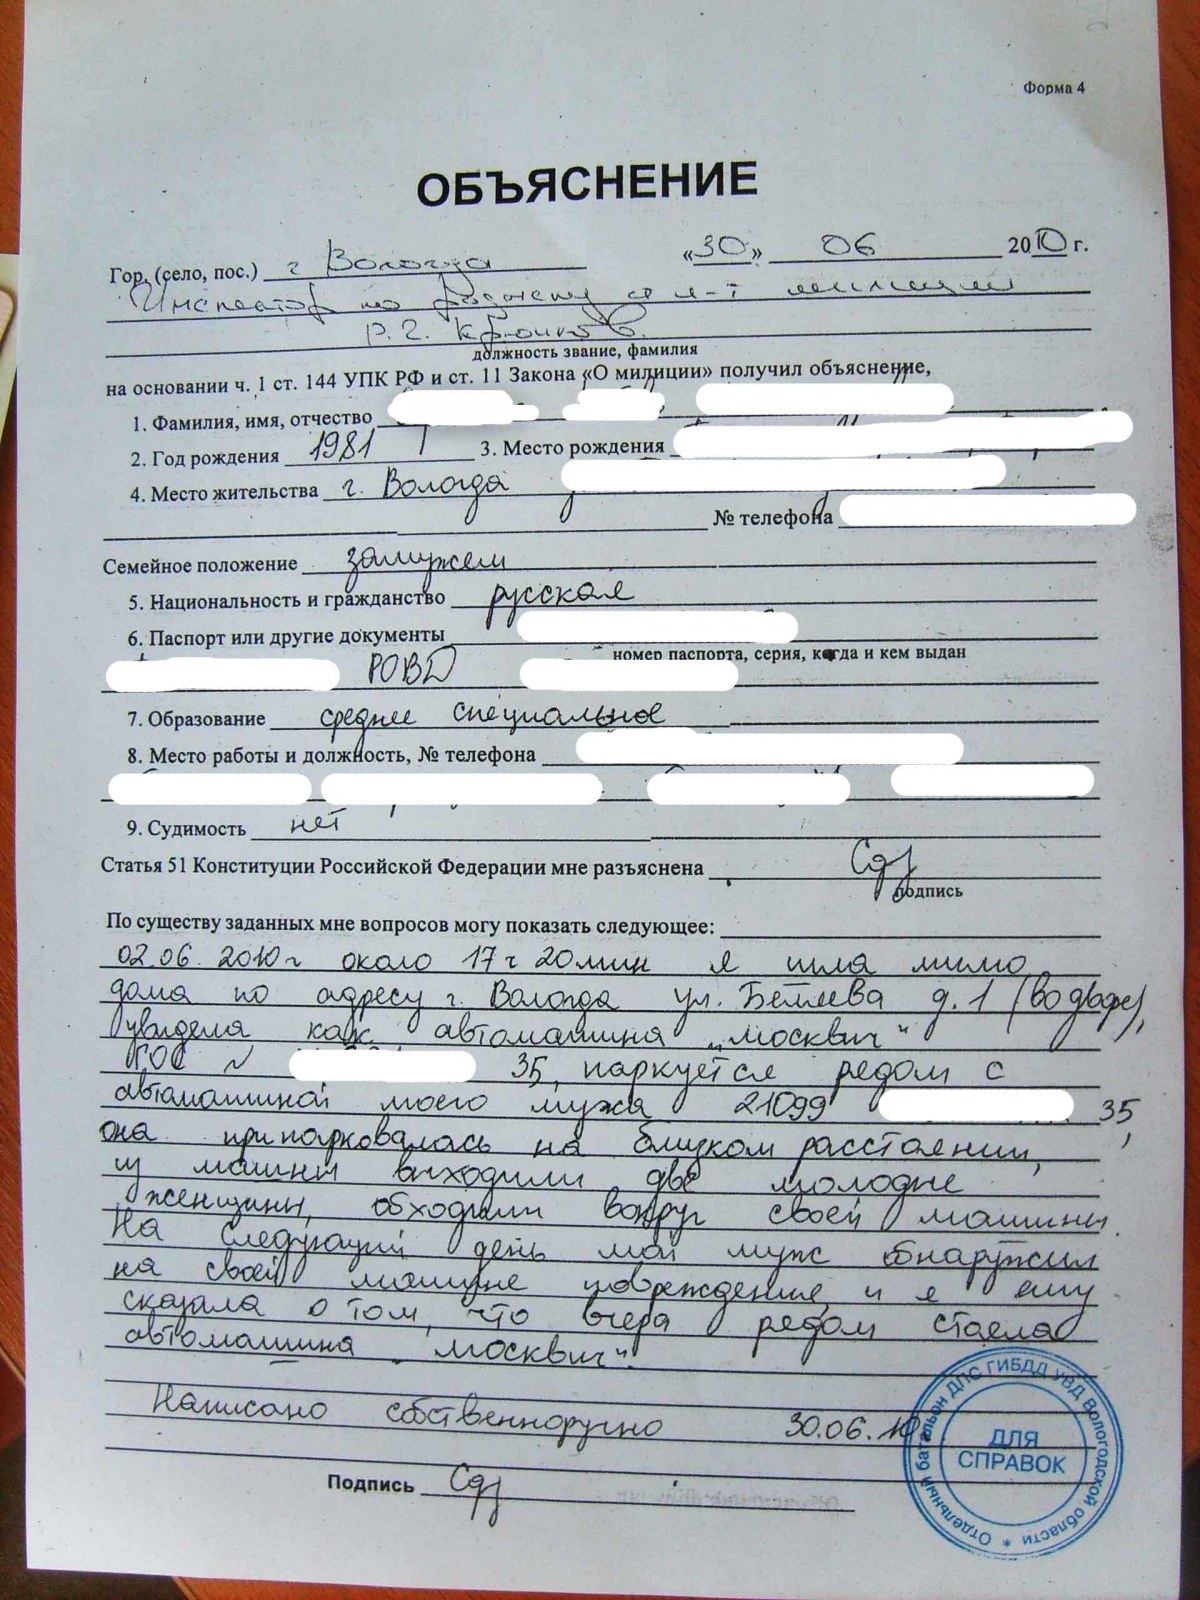 Форма 4
ОБЪЯСНЕНИЕ
Гор. (село, пос.) г Вологда «30» 06 2010 г.
Инспектор по розыску милиции
Р.Г.
должность звание, фамилия
на основании ч. 1 ст. 144 УПК РФ и ст. 11 Закона «О милиции» получил объяснение,
1. Фамилия, имя, отчество
2. Год рождения 1981 г 3. Место рождения
4. Место жительства г. Вологда
№ телефона
Семейное положение замужем
5. Национальность и гражданство русская
6. Паспорт или другие документы
номер паспорта, серия, когда и кем выдан
РОВД
7. Образование среднее специальное
8. Место работы и должность, № телефона
9. Судимость нет
Статья 51 Конституции Российской Федерации мне разъяснена
подпись
По существу заданных мне вопросов могу показать следующее:
02.06. 2010 г около 17 ч 20 мин я шла мимо
дома по адресу г. Вологда ул. Беляева д. 1 (во дворе),
увидела как автомашина „москвич"
гос № 35, паркуется рядом с
автомашиной моего мужа 21099 35,
она припарковалась на близком расстоянии,
из машины выходили две молодые
женщины, обходили вокруг своей машины
На следующий день мой муж обнаружил
на своей машине повреждение, и я ему
сказала о том, что вчера рядом стояла
автомашина „москвич".
Написано собственноручно 30.06.10
Подпись
Отдельный батальон ДПС ГИБДД УВД Вологодской области *
ДЛЯ
СПРАВОК